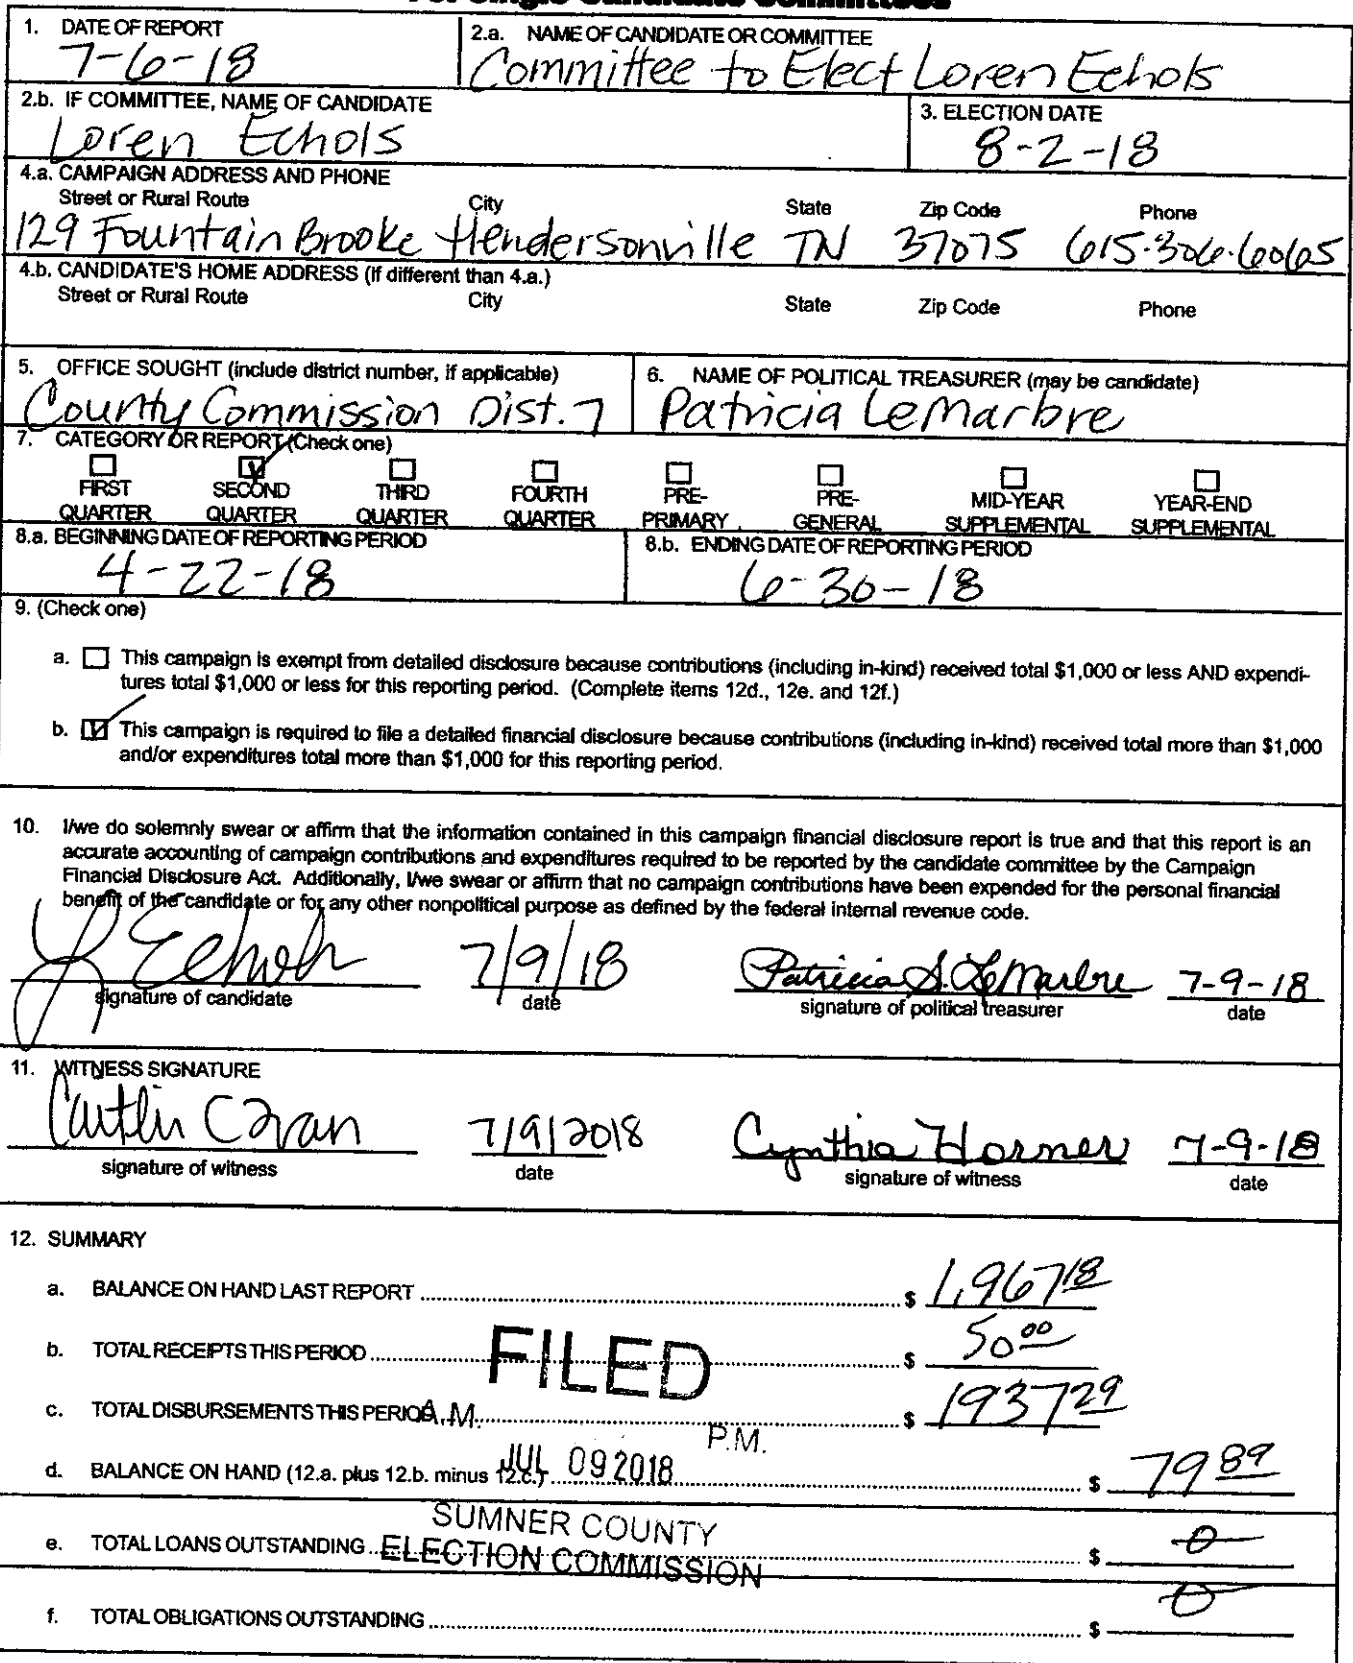 For Single Candidate Committees
1. DATE OF REPORT
7-6-18
2.a. NAME OF CANDIDATE OR COMMITTEE
Committee to Elect Loren Echols
2.b. IF COMMITTEE, NAME OF CANDIDATE
Loren Echols
3. ELECTION DATE
8-2-18
4.a. CAMPAIGN ADDRESS AND PHONE
Street or Rural Route City State Zip Code Phone
129 Fountain Brooke Hendersonville TN 37075 615-306-6065
4.b. CANDIDATE'S HOME ADDRESS (If different than 4.a.)
Street or Rural Route City State Zip Code Phone
5. OFFICE SOUGHT (include district number, if applicable)
County Commission Dist. 7
6. NAME OF POLITICAL TREASURER (may be candidate)
Patricia LeMarbre
7. CATEGORY OR REPORT (Check one)
FIRST QUARTER
SECOND QUARTER
THIRD QUARTER
FOURTH QUARTER
PRE-PRIMARY
PRE-GENERAL
MID-YEAR SUPPLEMENTAL
YEAR-END SUPPLEMENTAL
8.a. BEGINNING DATE OF REPORTING PERIOD
4-22-18
8.b. ENDING DATE OF REPORTING PERIOD
6-30-18
9. (Check one)
a. This campaign is exempt from detailed disclosure because contributions (including in-kind) received total $1,000 or less AND expendi-
tures total $1,000 or less for this reporting period. (Complete items 12d., 12e. and 12f.)
b. This campaign is required to file a detailed financial disclosure because contributions (including in-kind) received total more than $1,000
and/or expenditures total more than $1,000 for this reporting period.
10. I/we do solemnly swear or affirm that the information contained in this campaign financial disclosure report is true and that this report is an
accurate accounting of campaign contributions and expenditures required to be reported by the candidate committee by the Campaign
Financial Disclosure Act. Additionally, I/we swear or affirm that no campaign contributions have been expended for the personal financial
benefit of the candidate or for any other nonpolitical purpose as defined by the federal internal revenue code.
L Echols 7/9/18 Patricia S. LeMarbre 7-9-18
signature of candidate date signature of political treasurer date
11. WITNESS SIGNATURE
Caitlin 7/9/2018 Cynthia Horner 7-9-18
signature of witness date signature of witness date
12. SUMMARY
a. BALANCE ON HAND LAST REPORT $ 1,967 18
b. TOTAL RECEIPTS THIS PERIOD $ 50 00
FILED
c. TOTAL DISBURSEMENTS THIS PERIOD $ 1937 29
A.M. P.M.
d. BALANCE ON HAND (12.a. plus 12.b. minus 12.c.) $ 79 89
JUL 09 2018
SUMNER COUNTY
e. TOTAL LOANS OUTSTANDING $ 0
ELECTION COMMISSION
f. TOTAL OBLIGATIONS OUTSTANDING $ 0